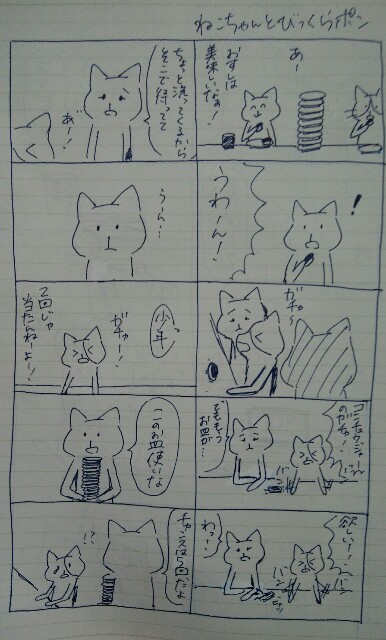 ねこちゃんとびっくらポン
あー
おすしは
美味しいなぁ!
!
うわーん!
ガチャ〜
のガチャ!
でももう
お皿が…
バン
バン
欲しいー!
バン
バン
わっ!
ちょっと洗ってくるから
そこで待ってて
あ〜!
うーん…
少年
ガチャー!
2回じゃ
当たんねーよー!
このお皿使いな
!?
チャンスは5回だよ